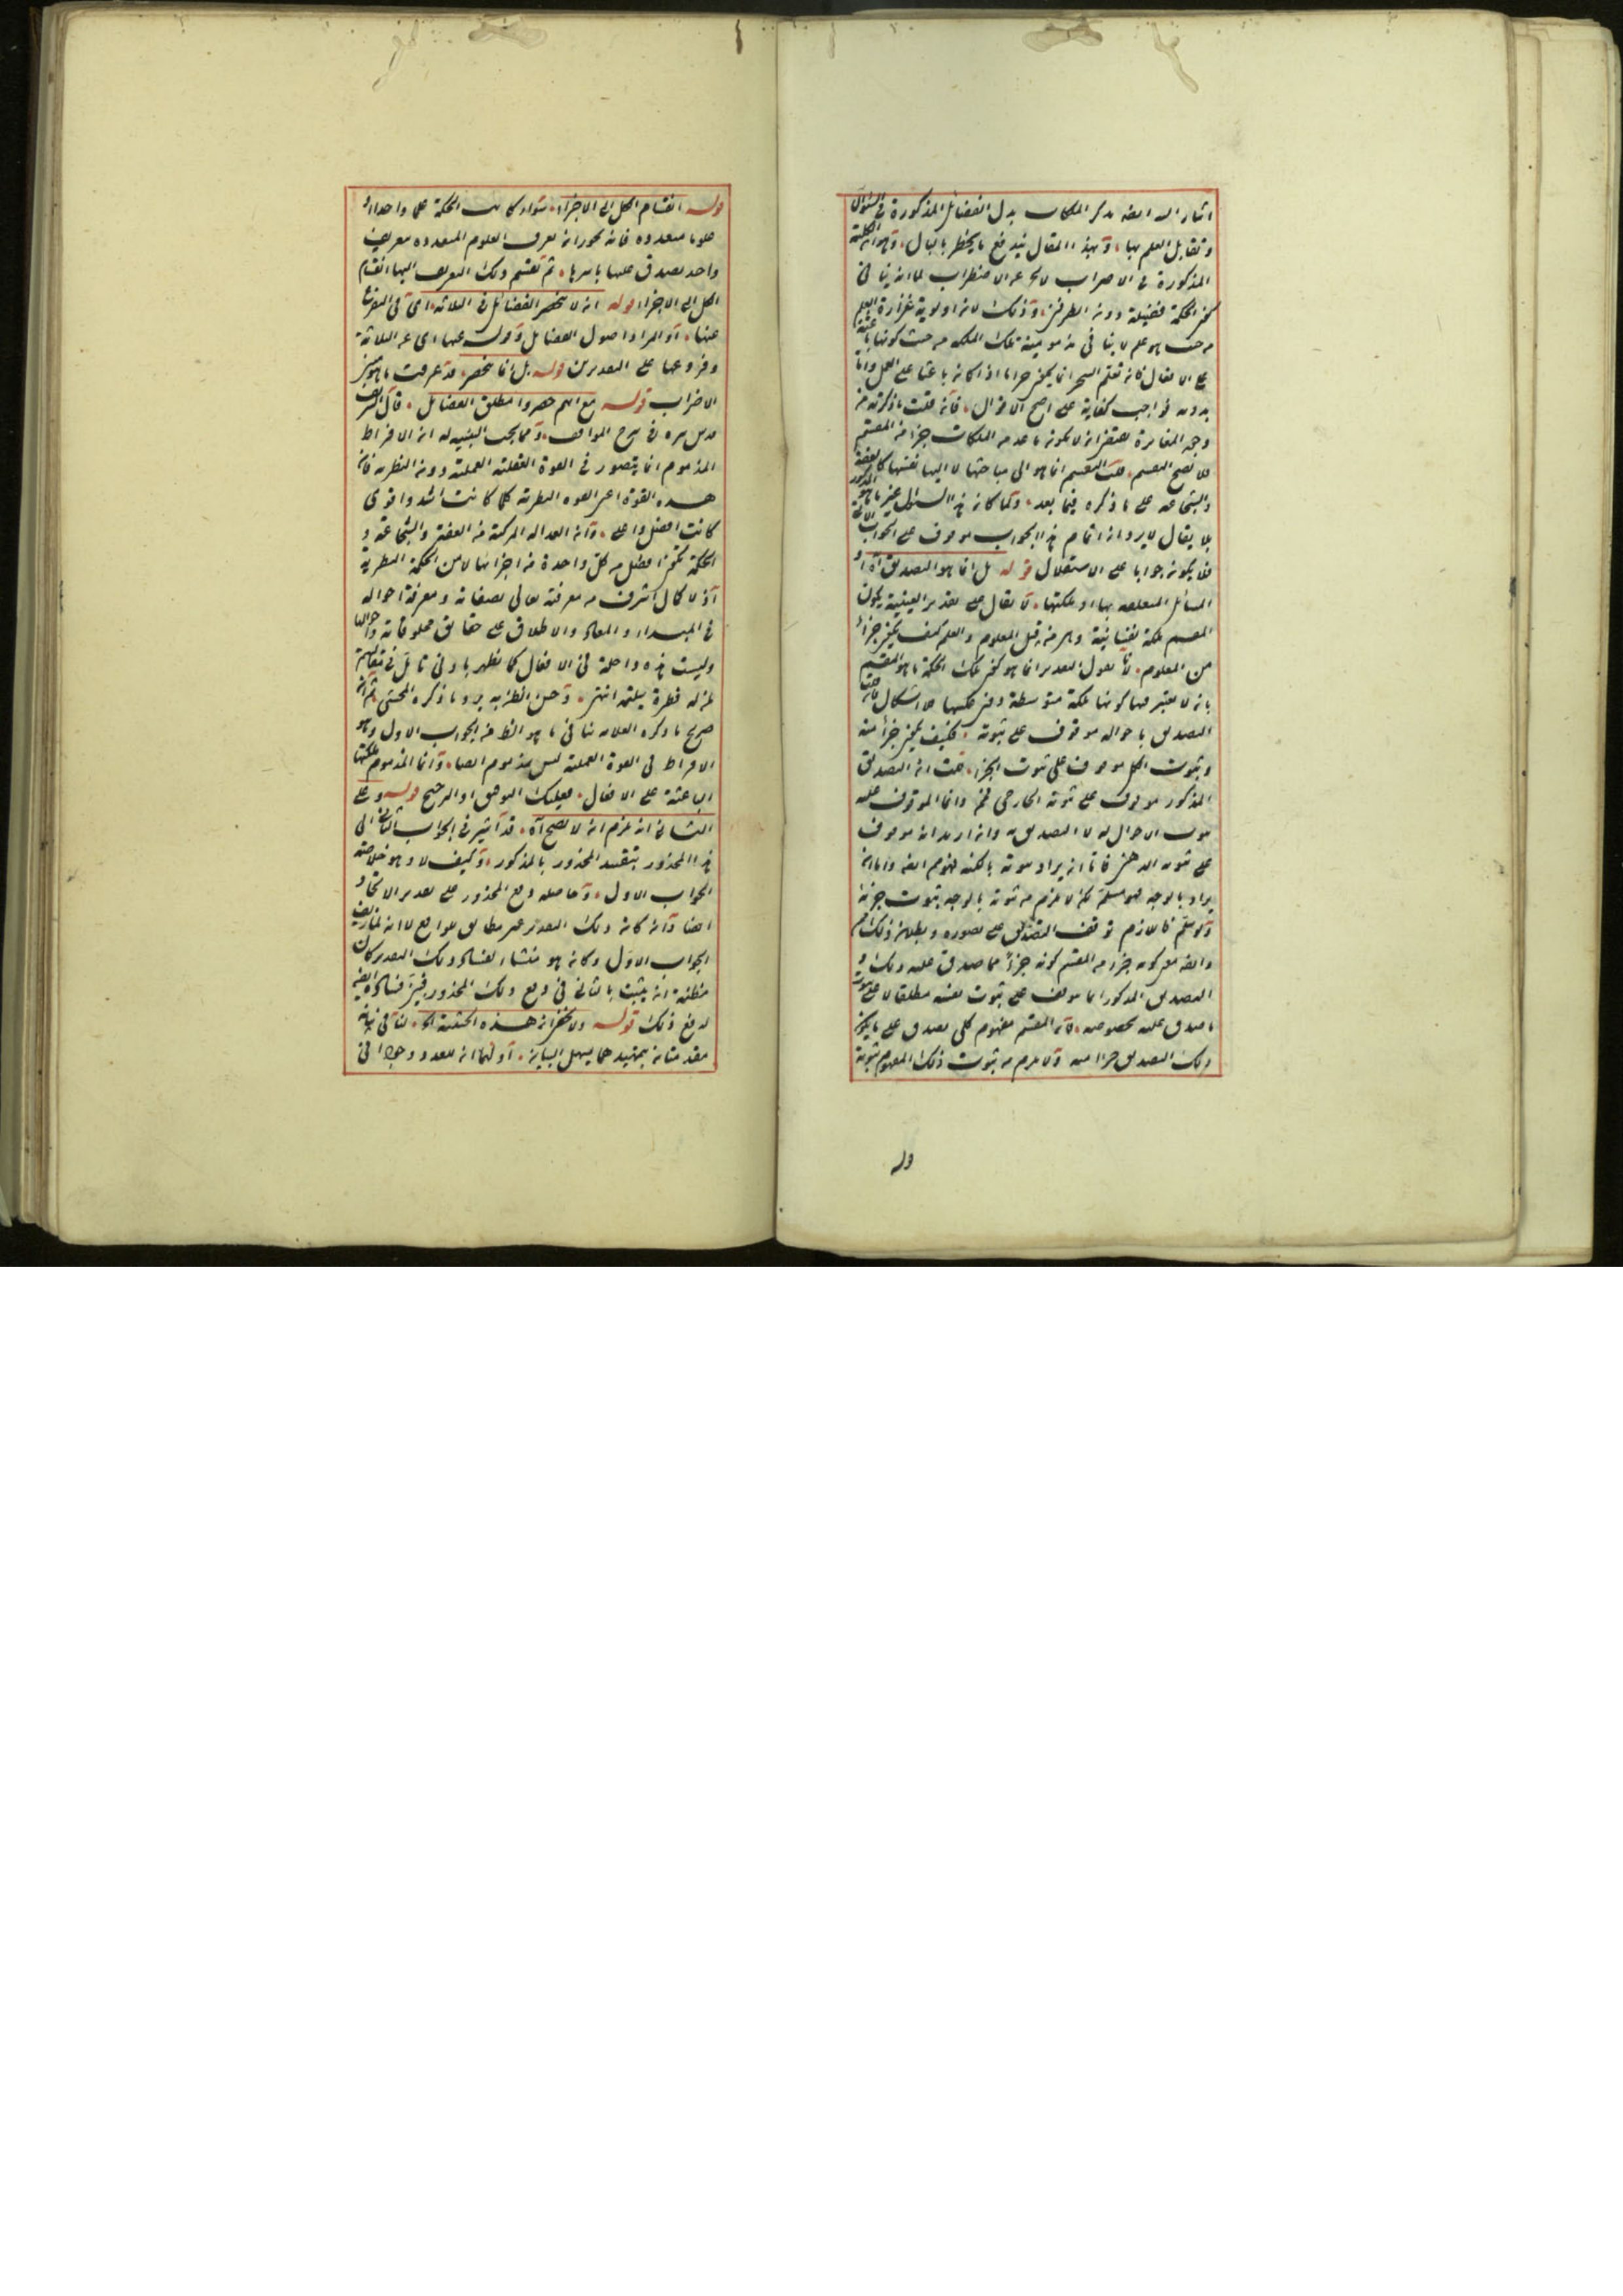 اشار اليه ايضه بذكر الملكات بدل الفضائل المذكورة في السؤال
وتقابل العلم بها وبهذا المقال يندفع ما يخطر بالبال وهو ان الحكمة
المذكورة في الاضراب لا عن الاضطراب لما انه ينافي
كون الحكمة فضيلة دون الطرفين وذلك لانه اولوية غزارة العلم
من حيث هو علم لا ينافي مذمومية تلك الملكة من حيث كونها باعثة
على الافعال فانه تعلم السحر انما يكون حراما اذا كان باعثا على العمل واما
بدونه فواجب كفاية على اصح الاقوال فان قلت ما ذكرته من
وجه المغايرة يقتضي ان لا يكون ما عد من الملكات جزأ من المقسم
فلا يصح التقسيم قلت التقسيم انما هو الى مباحثها لا اليها نفسها كالعفة
والشجاعة على ما ذكره فيما بعد ولما كان هذا السؤال غير ما هو المذكور
بلا يقال لا يرد ان اتمام هذا الجواب موقوف على الجواب الآتي
فلا يكون جوابا على الاستقلال قوله بل انما هو التصديق آه او
المسائل المتعلقة بها او ملكتها لا يقال على تقدير العينية يكون
المقسم ملكة نفسانية وهي من قبل المعلوم والعلم كيف يكون جزأ
من المعلوم لانا نقول التقدير انما هو كون تلك الحكمة ما هو المقسم
بانه لا يعتبر فيها كونها ملكة متوسطة وفي عكسها الاشكال
التصديق باحواله موقوف على ثبوته فكيف يكون جزأ منه
وثبوت الكل موقوف على ثبوت الجزء قلت ان التصديق
المذكور موقوف على ثبوته الخارجي فمم وانما الموقوف عليه
ثبوت الاحوال له لا التصديق به وان اريد انه موقوف
على ثبوته الذهني فاما ان يراد ثبوته بالكنه فهو مم ايضه واما ان
يراد بالوجه فهو مسلم لكن لا يلزم من ثبوته بالوجه ثبوت جزئه
ولو سلم فاللازم توقف التصديق على تصوره وبطلان ذلك مم
وايضه معنى كونه جزء من المقسم كونه جزأ مما صدق عليه وذلك
التصديق المذكور انما يتوقف على ثبوت نفسه مطلقا لا على ثبوت
ما صدق عليه بخصوصه فان المقسم مفهوم كلي يصدق على ما يكون
ذلك التصديق جزأ منه ولا يلزم من ثبوت ذلك المفهوم ثبوته
قوله
قوله انقسام الكل الى الاجزاء سواء كانت الحكمة علما واحدا او
علوما متعددة فانه يجوز ان يعرف العلوم المتعددة بتعريف
واحد يصدق عليها باسرها ثم تقسم ذلك المعرف اليها انقسام
الكل الى الاجزاء قوله انه لا تنحصر الفضائل في الثلاثة اي في المتفرع
عنها او المراد اصول الفضائل وقوله عنها اي عن الثلاثة
وفروعها على التقديرين قوله بل انما تنحصر قد عرفت ما هو مبنى
الاضراب قوله مع انهم حصروا مطلق الفضائل قال الشريف
قدس سره في شرح المواقف ومما يجب التنبيه له ان الافراط
المذموم انما يتصور في القوة العقلية العملية دون النظرية فان
هذه القوة اعني القوة النظرية كلما كانت اشد واقوى
كانت افضل واعلى وان العدالة المركبة من العفة والشجاعة و
الحكمة تكون افضل من كل واحدة من اجزائها لا من الحكمة النظرية
اذ لا كمال اشرف من معرفته تعالى بصفاته ومعرفة افعاله
في المبدأ والمعاد والاطلاع على حقايق مخلوقاته واحوالها
وليست هذه داخلة في الافعال كما يظهر بادنى تأمل في مقالهم
لمن له فطرة سليمة انتهى وحسن الظن به يرد ما ذكره المحشي ثم ان
صريح ما ذكره العلامة ينافي ما هو الظ من الجواب الاول وهو
الافراط في القوة العملية ليس بمذموم ايضا وانما المذموم ملكتها
الباعثة على الافعال فعليك التوفيق او الترجيح قوله وعلى
الثاني انه يلزم ان لا يصح آه قد اشير في الجواب الثاني الى
هذا المحذور بتقييد المحذور بالمذكور وكيف لا وهو خلاصة
الجواب الاول وحاصله دفع المحذور على تقدير الاتحاد
ايضا وان كان ذلك التقدير غير مطابق للواقع لا انه لما زيف
الجواب الاول وكان هو منشاء لفساد ذلك التقدير كان
مظنة ان يتشبث بالثاني في دفع ذلك المحذور فبين فساده ايضه
لدفع ذلك قوله ولا يخفى ان هذه الحيثية آه لنا في بيانه
مقدمتان بتمهيدهما يسهل البيان اولهما ان للعدد وجودا في